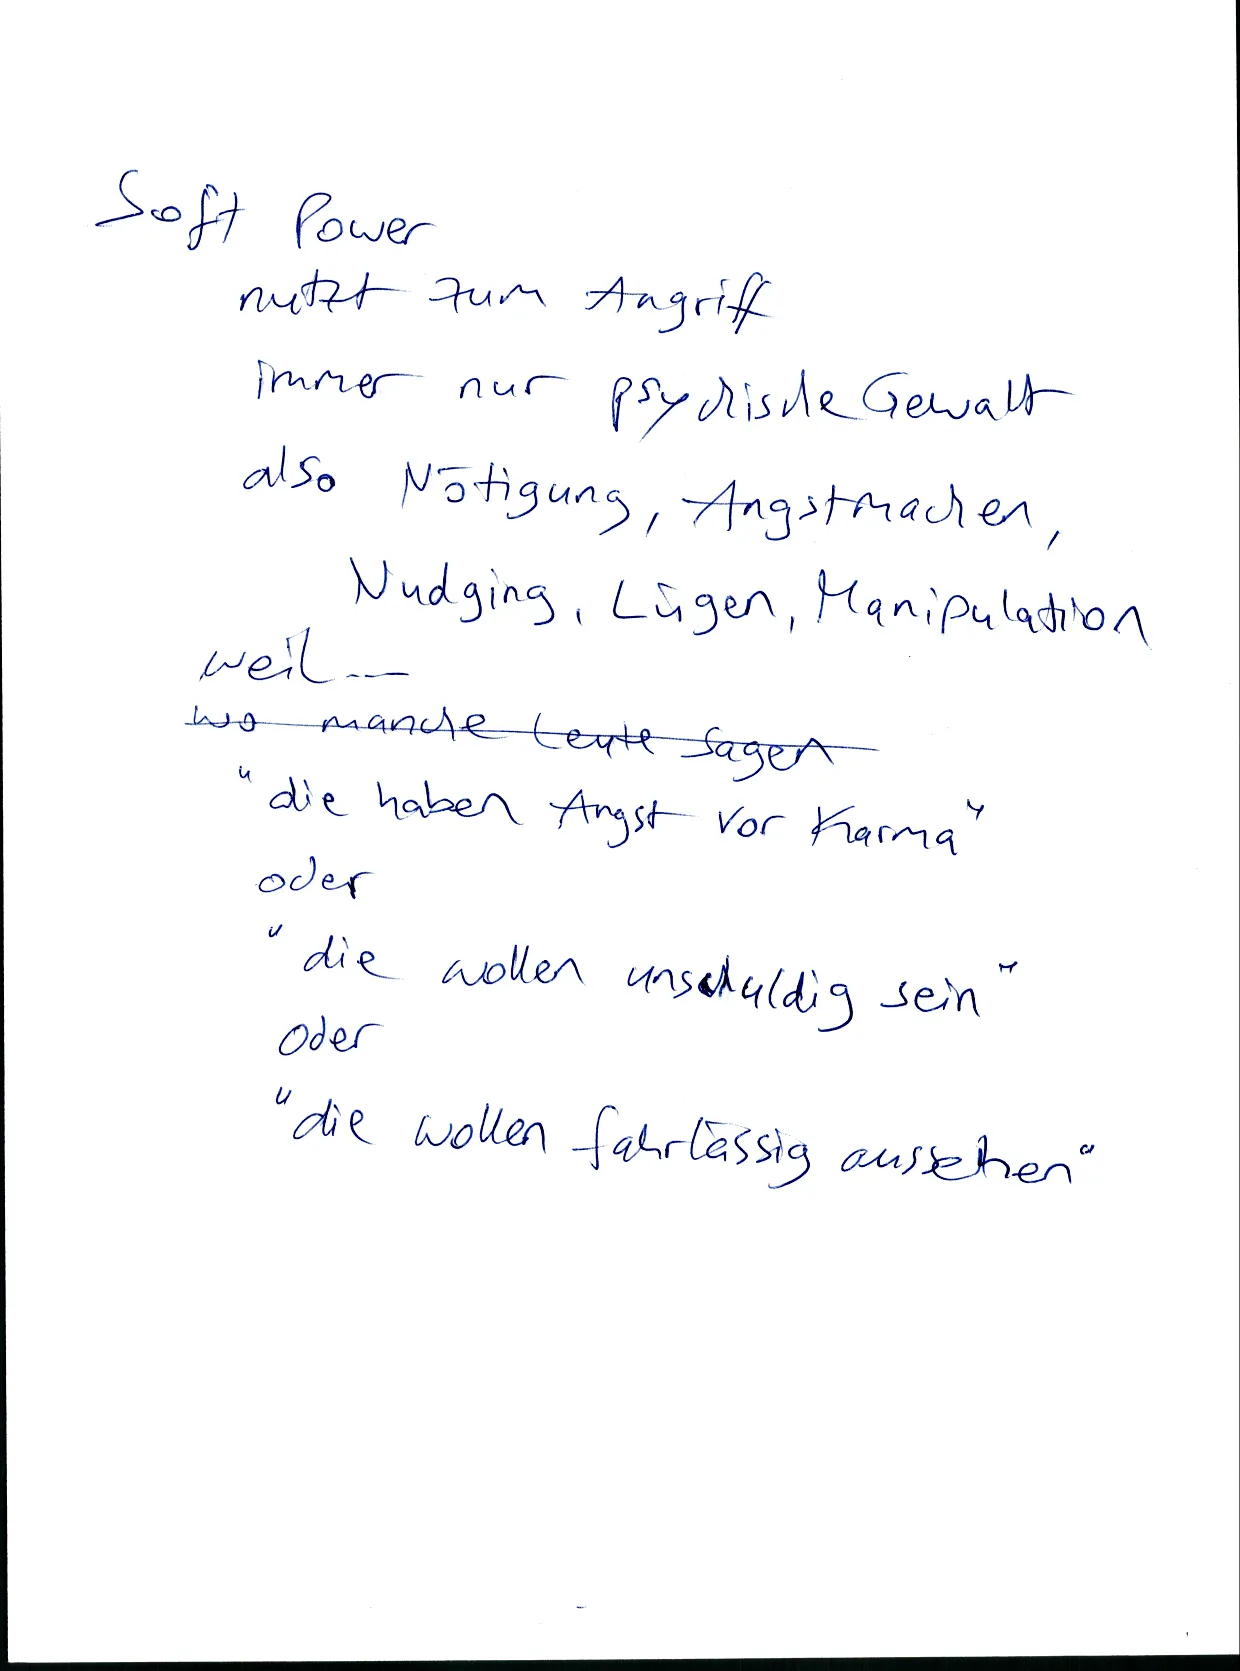 Soft Power
nutzt zum Angriff
immer nur psychische Gewalt
also Nötigung, Angstmachen,
Nudging, Lügen, Manipulation
weil...
wo manche Leute sagen
"die haben Angst vor Karma"
oder
"die wollen unschuldig sein"
oder
"die wollen fahrlässig aussehen"